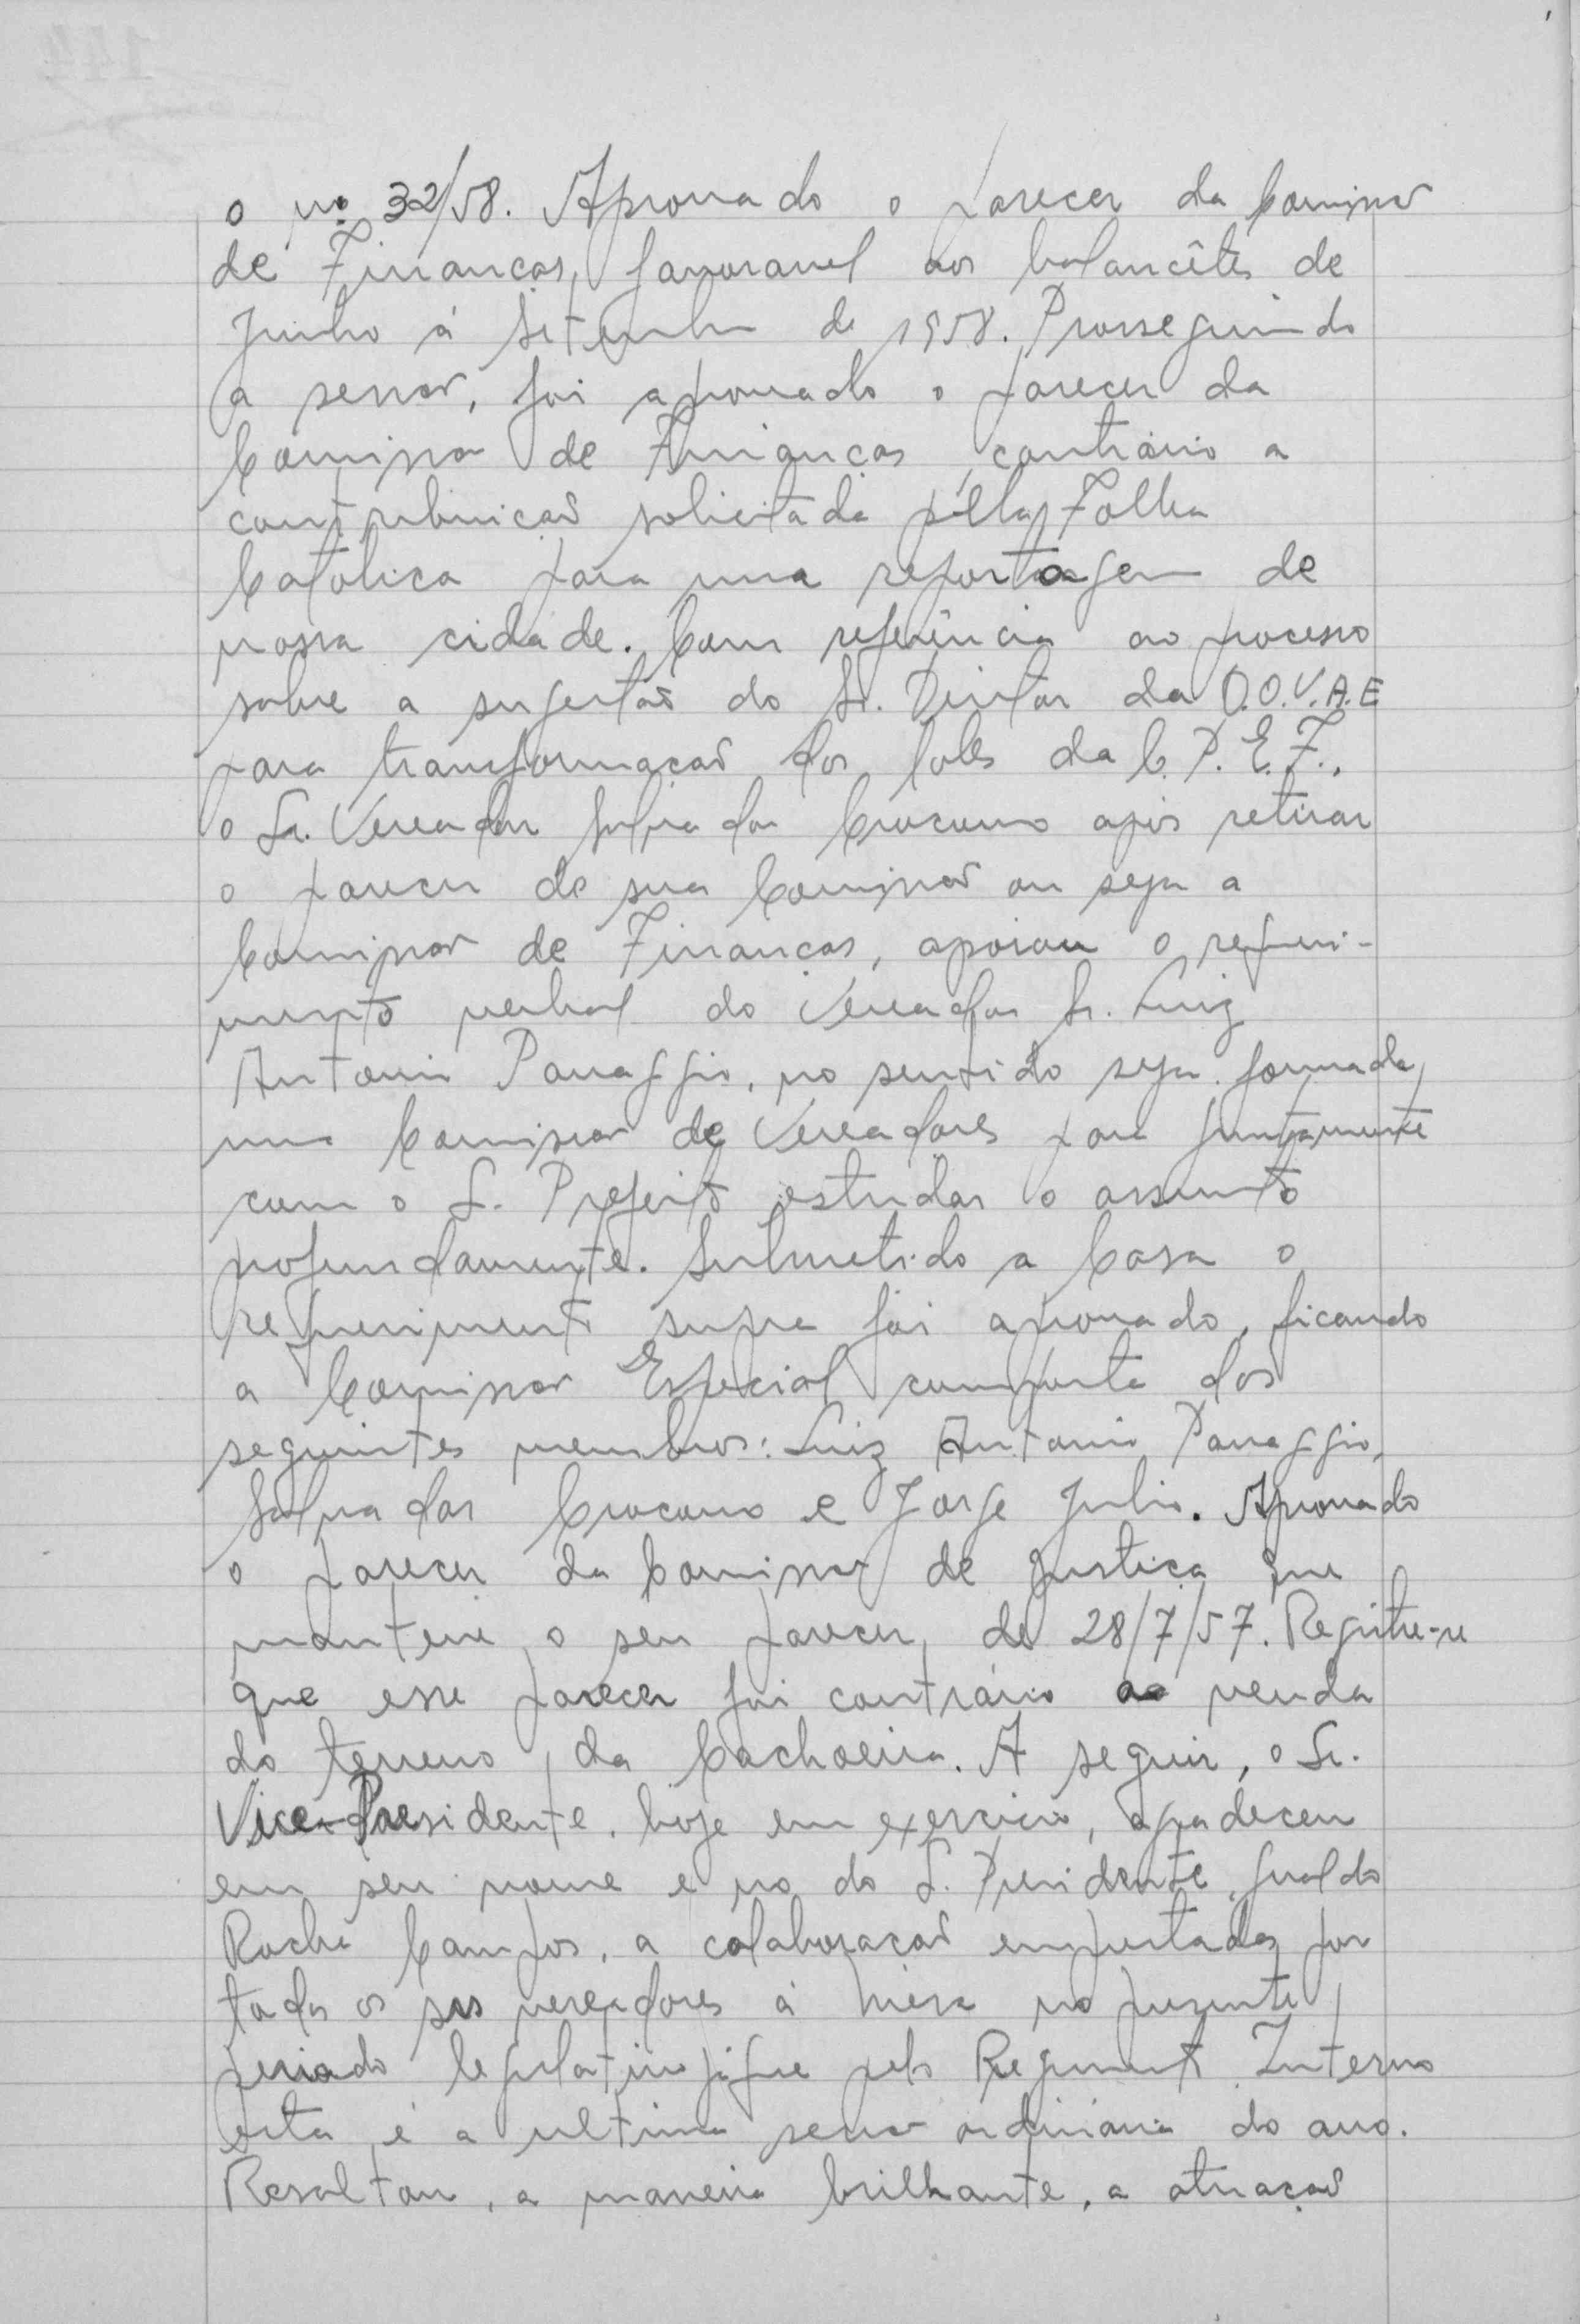 o nº 32/58. Aprovado o parecer da Comissão
de Finanças, favoravel aos balancêtes de
Junho á Setembro de 1958. Prosseguindo
a sessão, foi aprovado o parecer da
Comissão de Finanças, contrário a
contribuição solicitada pella Folha
Católica para uma reportagem de
nossa cidade. Com referência ao processo
sobre a sugestão do Sr. Diretor da D.O.V.A.E
para transformação dos lotes da C.P.E.F.,
o Sr. Vereador Salvador Crocomo após retirar
o parecer de sua Comissão ou seja a
Comissão de Finanças, apoiou o requeri-
mento verbal do Vereador Sr. Luiz
Antonio Panaggio, no sentido seja formada
uma Comissão de Vereadores para juntamente
com o Sr. Prefeito estudar o assunto
profundamente. Submetido a Casa o
requerimento supra foi aprovado, ficando
a Comissão Especial composta dos
seguintes membros: Luiz Antonio Panaggio,
Salvador Crocomo e Jorge Julio. Aprovado
o parecer da Comissão de Justiça que
manteve o seu parecer de 28/7/57. Registre-se
que esse parecer foi contrário ao venda
do terreno da Cachoeira. A seguir, o Sr.
Vice-Presidente, hoje em exercicio, agradeceu
em seu nome e no do Sr. Presidente
Rocha Campos, a colaboração emprestada por
todos os srs vereadores á mesa no presente
periodo legislativo já que pelo Regimento Interno
esta é a ultima sessão ordinária do ano.
Resaltou, a maneira brilhante, a atuação